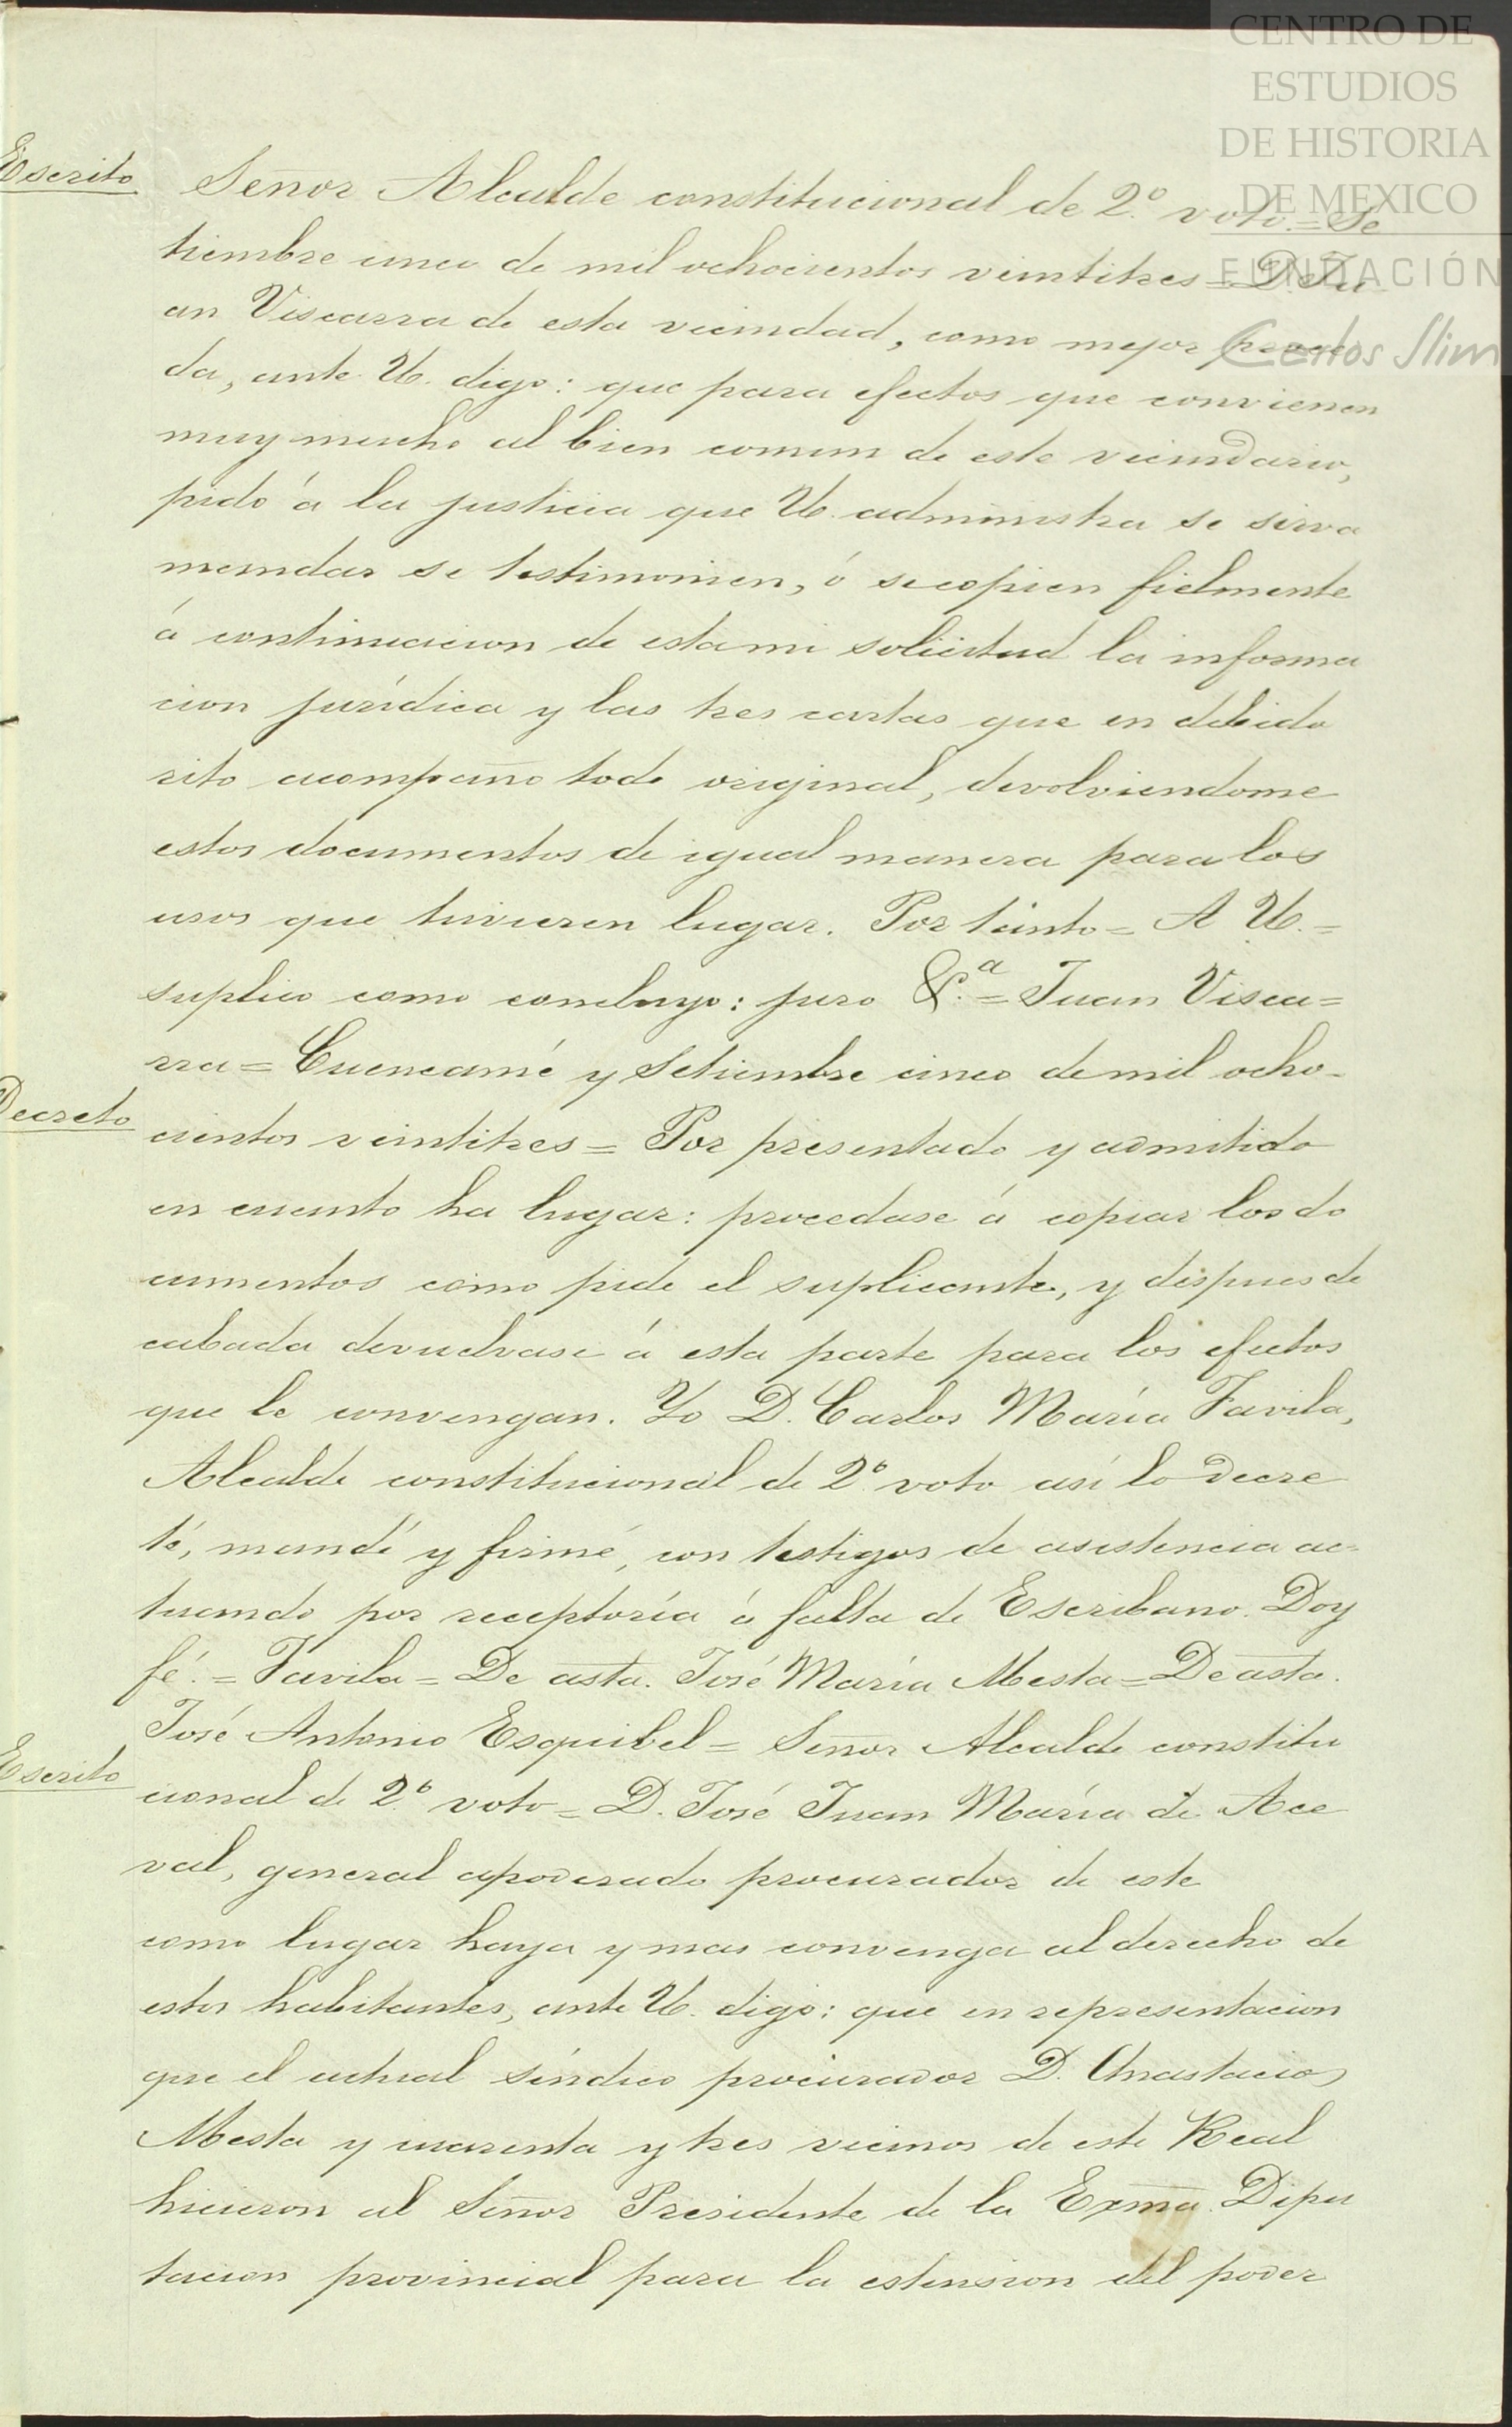 CENTRO DE
ESTUDIOS
DE HISTORIA
DE MEXICO
FUNDACIÓN
Carlos Slim
Escrito Señor Alcalde constitucional de 2.º voto.= Se
tiembre cinco de mil ochocientos veintitres= D. Ju
an Viscarra de esta vecindad, como mejor proce
da, ante U. digo: que para efectos que convienen
muy mucho al bien comun de este vecindario,
pido á la justicia que U. administra se sirva
mandar se testimonien, ó se copien fielmente
á continuacion de esta mi solicitud la informa
cion jurídica y las tres cartas que en debido
rito acompaño todo original, devolviendome
estos documentos de igual manera para los
usos que tuvieren lugar. Por tanto= A U.=
suplico como concluyo: juro &.ª= Juan Visca=
rra= Cuencamé y Setiembre cinco de mil ocho-
Decreto cientos veintitres= Por presentado y admitido
en cuanto ha lugar: procedase á copiar los do
cumentos como pide el suplicante, y despues de
cabada devuelvase á esta parte para los efectos
que le convengan. Yo D. Carlos María Favila,
Alcalde constitucional de 2.º voto así lo decre
té, mandé y firmé, con testigos de asistencia ac-
tuando por receptoría á falta de Escribano. Doy
fé.= Favila= De asta. José María Mesta= De asta.
José Antonio Esquibel= Señor Alcalde constitu
Escrito cional de 2.º voto= D. José Juan María de Ace
val, general apoderado procurador de este
como lugar haya y mas convenga al derecho de
estos habitantes, ante U. digo: que en representacion
que el actual síndico procurador D. Anastacio
Mesta y cuarenta y tres vecinos de este Real
hicieron al Señor Presidente de la Exma. Dipu
tacion provincial para la estension del poder